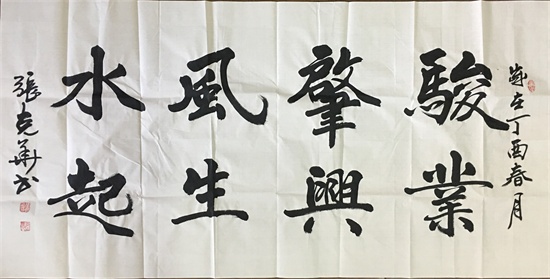 歲在丁酉春月
駿業
肇興
風生
水起
張克華书